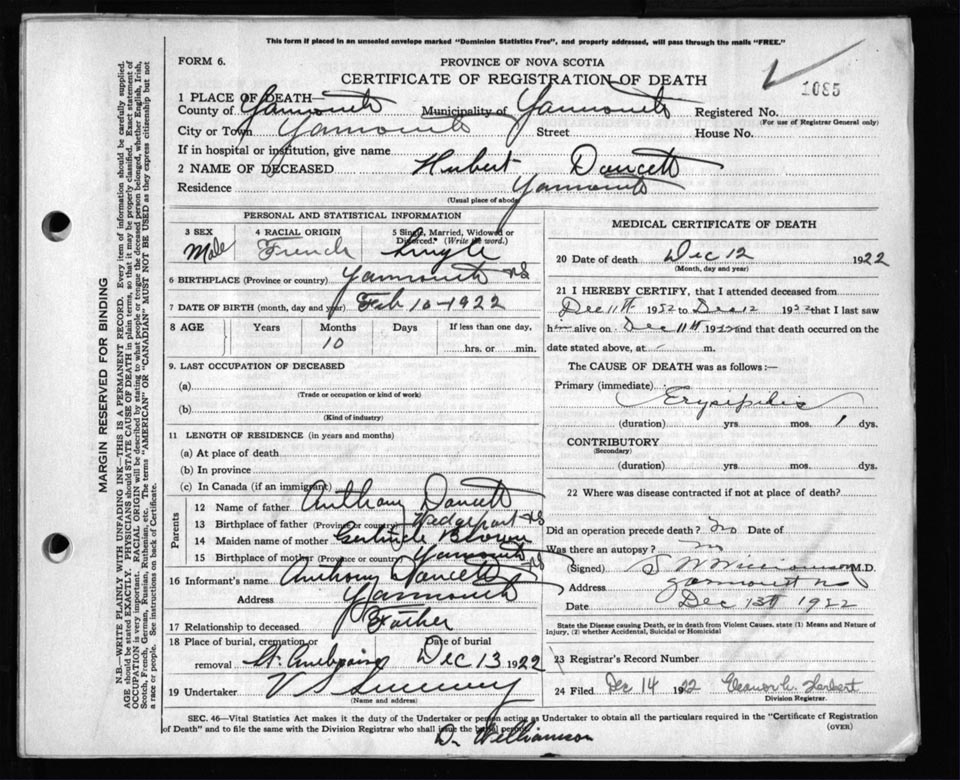 This form if placed in an unsealed envelope marked "Dominion Statistics Free", and properly addressed, will pass through the mails "FREE."
FORM 6.
PROVINCE OF NOVA SCOTIA
CERTIFICATE OF REGISTRATION OF DEATH
1085
1 PLACE OF DEATH—
County of Yarmouth Municipality of Yarmouth Registered No.
(For use of Registrar General only)
City or Town Yarmouth Street House No.
If in hospital or institution, give name
2 NAME OF DECEASED Hubert Doucett
Residence Yarmouth
(Usual place of abode)
PERSONAL AND STATISTICAL INFORMATION
3 SEX Male
4 RACIAL ORIGIN French
5 Single, Married, Widowed or Divorced. (Write the word.) Single
6 BIRTHPLACE (Province or country) Yarmouth NS
7 DATE OF BIRTH (month, day and year) Feb 10-1922
8 AGE Years Months Days If less than one day,
10 hrs. or min.
9. LAST OCCUPATION OF DECEASED
(a)
(Trade or occupation or kind of work)
(b)
(Kind of industry)
11 LENGTH OF RESIDENCE (in years and months)
(a) At place of death
(b) In province
(c) In Canada (if an immigrant)
Parents
12 Name of father Anthony Doucett
13 Birthplace of father (Province or country) Wedgeport NS
14 Maiden name of mother Gertrude
15 Birthplace of mother (Province or country) Yarmouth NS
16 Informant's name Anthony Doucett
Address Yarmouth
17 Relationship to deceased Father
18 Place of burial, cremation or removal Date of burial
St. Dec 13 1922
19 Undertaker V S Sweeney
(Name and address)
MEDICAL CERTIFICATE OF DEATH
20 Date of death Dec 12 1922
(Month, day and year)
21 I HEREBY CERTIFY, that I attended deceased from
Dec 11th to Dec 12 that I last saw
him alive on Dec 11th 1922 and that death occurred on the
date stated above, at - m.
The CAUSE OF DEATH was as follows:—
Primary (immediate)
Erysipelas
(duration) yrs. mos. 1 dys.
CONTRIBUTORY
(Secondary)
(duration) yrs. mos. dys.
22 Where was disease contracted if not at place of death?
Did an operation precede death? No Date of
Was there an autopsy? no
(Signed) S W Williamson M.D.
Address Yarmouth NS
Date Dec 13th 1922
State the Disease causing Death, or in death from Violent Causes, state (1) Means and Nature of
Injury, (2) whether Accidental, Suicidal or Homicidal
23 Registrar's Record Number
24 Filed Dec 14 1922 Herbert
Division Registrar.
SEC. 46—Vital Statistics Act makes it the duty of the Undertaker or person acting as Undertaker to obtain all the particulars required in the "Certificate of Registration
of Death" and to file the same with the Division Registrar who shall issue the burial permit. (OVER)
Dr Williamson
MARGIN RESERVED FOR BINDING
N.B.—WRITE PLAINLY WITH UNFADING INK—THIS IS A PERMANENT RECORD. Every item of information should be carefully supplied.
AGE should be stated EXACTLY. PHYSICIANS should STATE CAUSE OF DEATH in plain terms, so that it may be properly classified. Exact statement of
OCCUPATION is very important. RACIAL ORIGIN will be described by stating to what people or tongue the deceased person belonged, whether English, Irish,
Scotch, French, German, Russian, Ruthenian, etc. The terms "AMERICAN" OR "CANADIAN" MUST NOT BE USED as they express citizenship but not
a race or people. See instructions on back of Certificate.